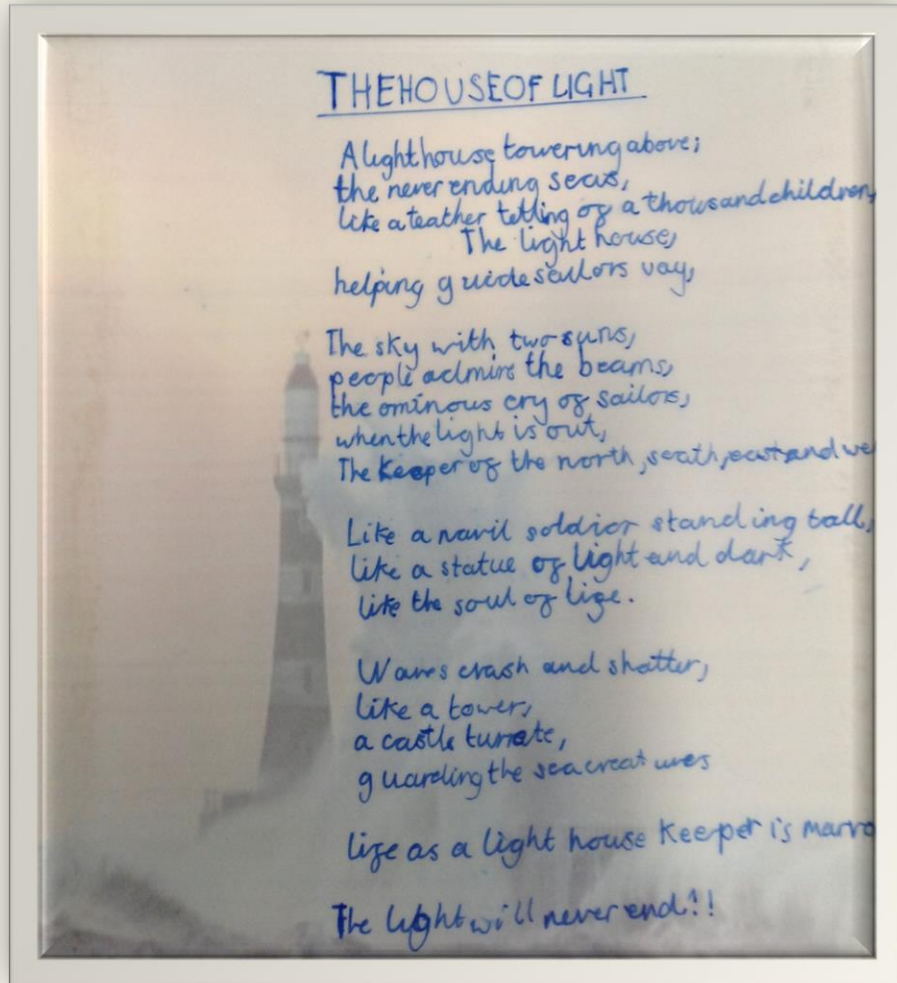 THE HOUSE OF LIGHT
A lighthouse towering above;
the never ending seas,
like a teather telling of a thousand children,
The light house,
helping guide sailors vay,
The sky with two suns,
people admire the beams,
the ominous cry of sailors,
when the light is out,
The Keeper of the north, seath, east and we
Like a navil soldier standing tall,
like a statue of light and dark,
like the soul of life.
Waves crash and shatter,
like a tower,
a castle turrate,
guarding the sea creatures
life as a light house Keeper is marvo
The light will never end!!